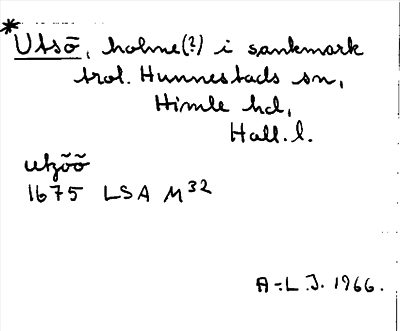 * Utsö, holme(?) i sankmark
trol. Hunnestads sn,
Himle hd,
Hall. l.
utzöö
1675 LSA M32
A-L.J. 1966.